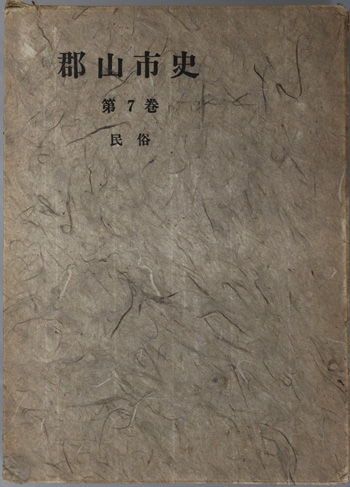 郡山市史
第7巻
民俗